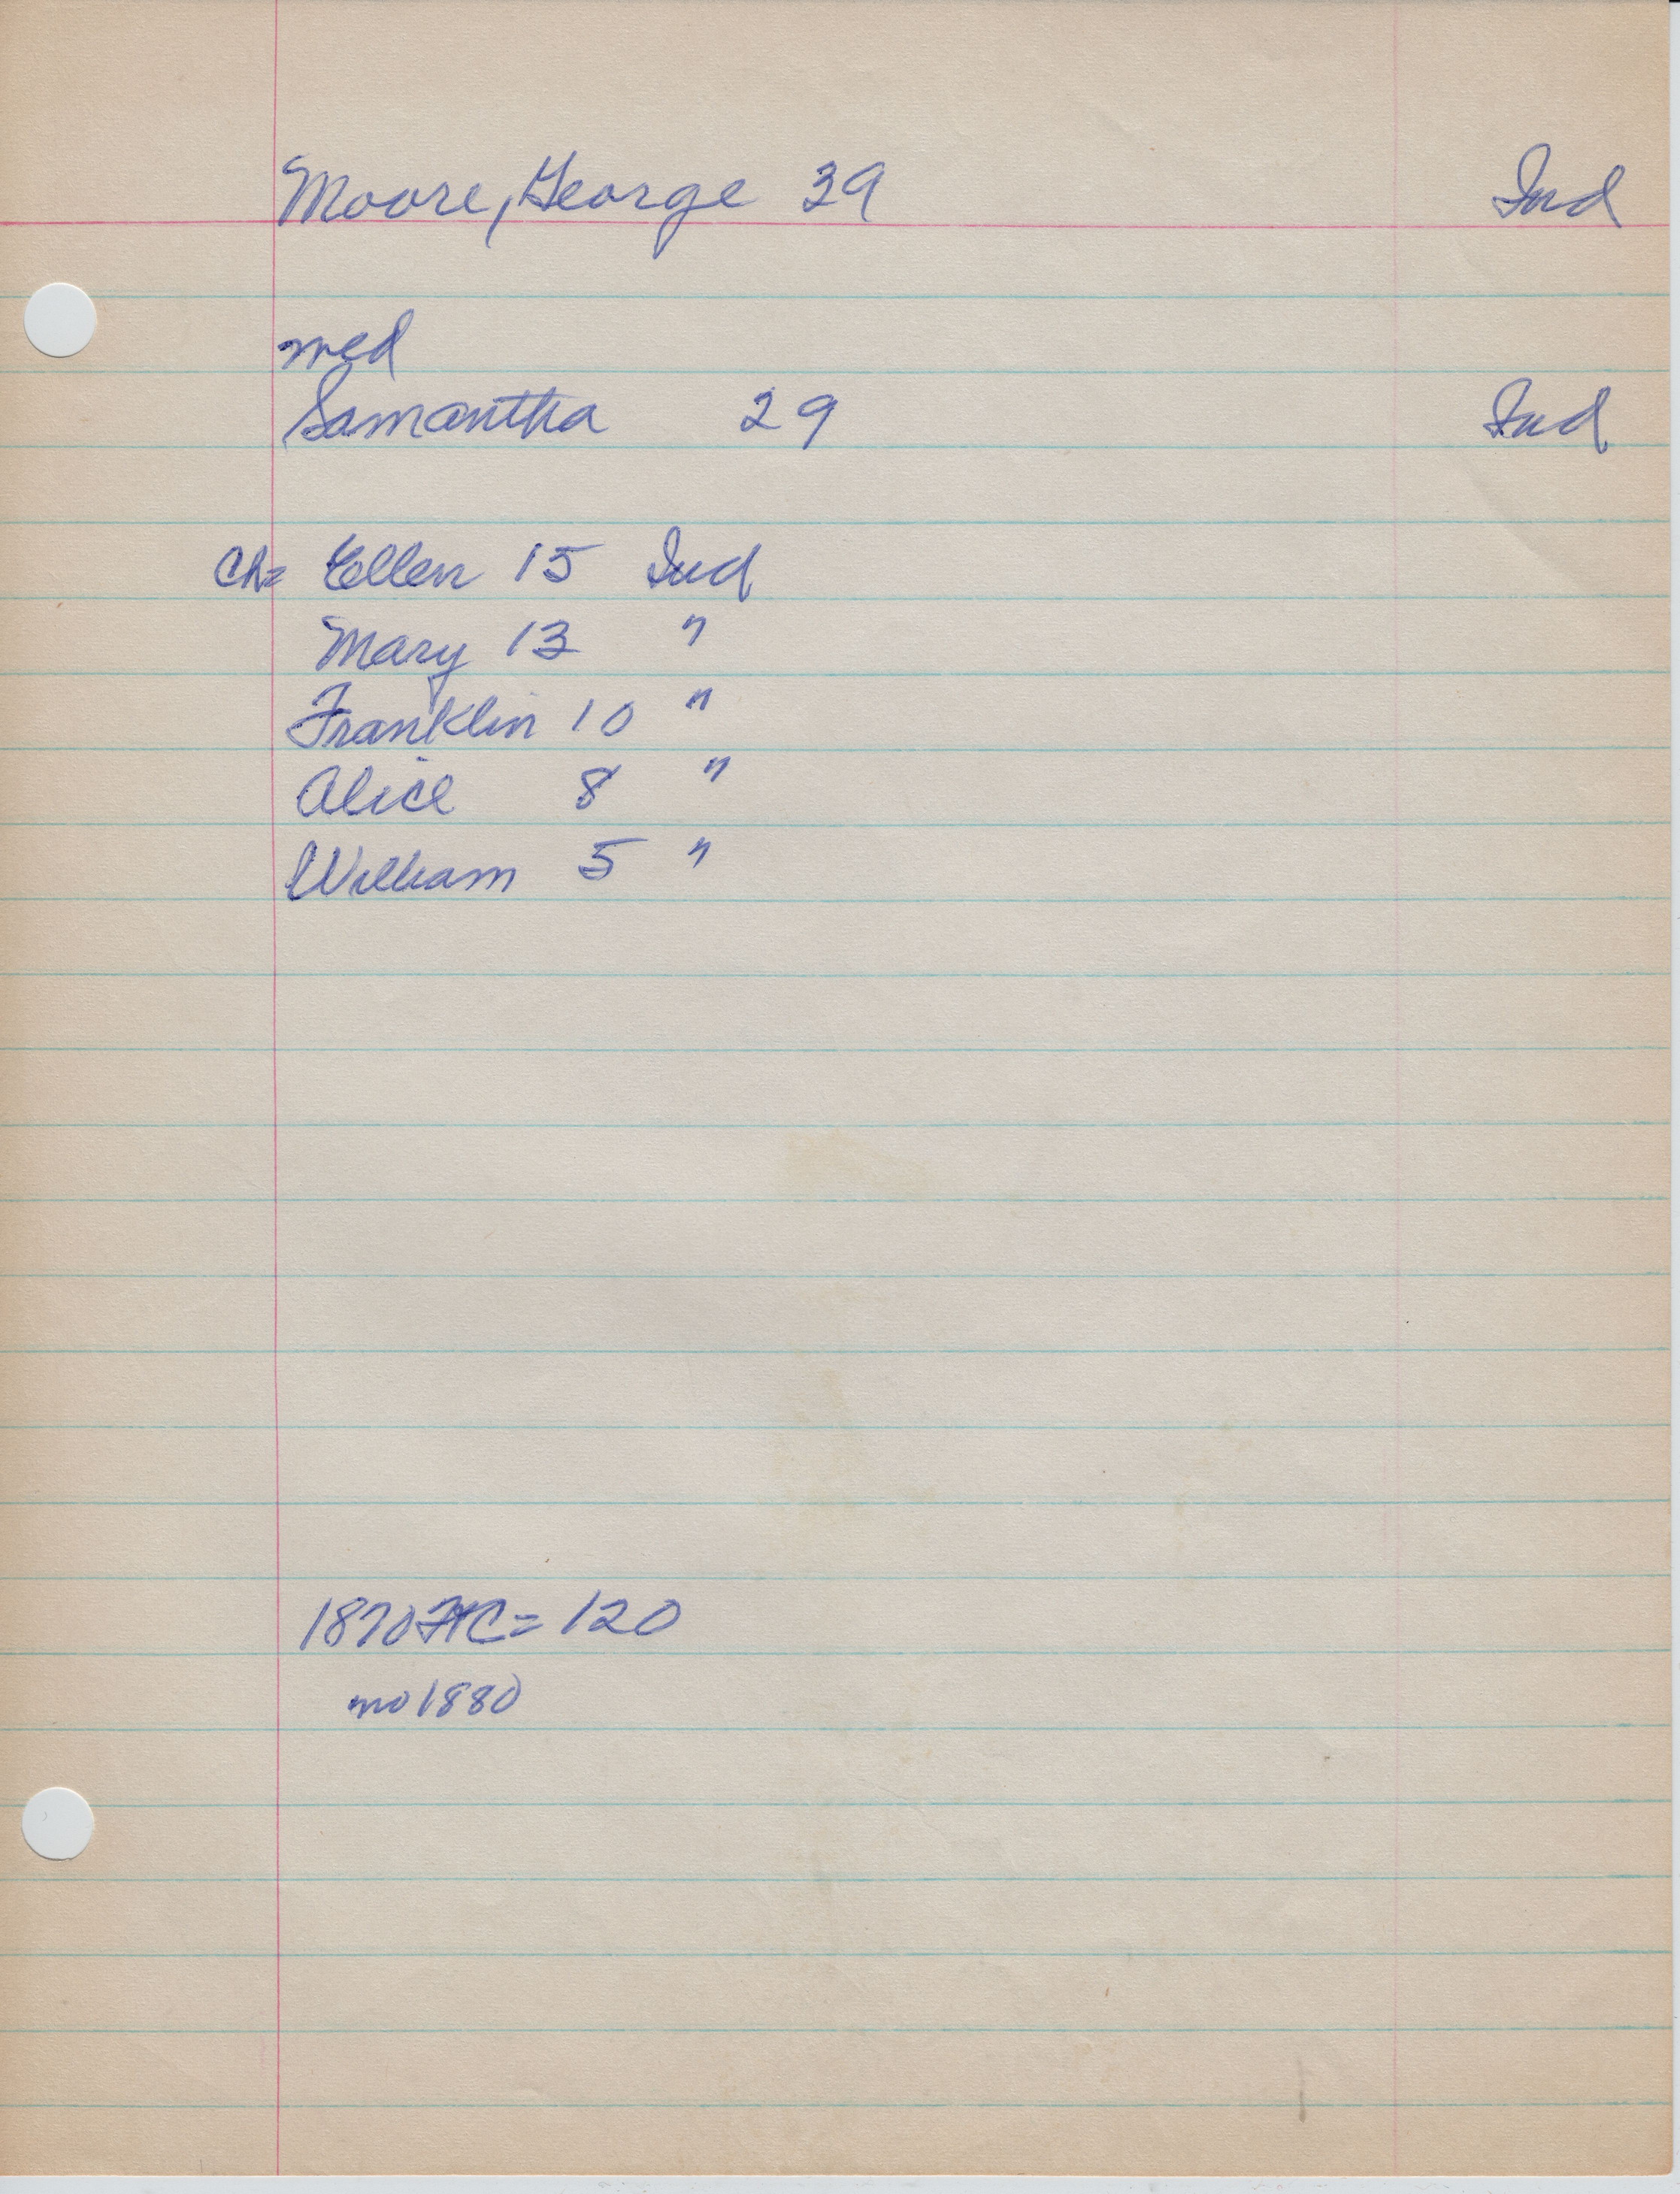 Moore, George 39 Ind
med
Samantha 29 Ind
Ch= Ellen 15 Ind
Mary 13 "
Franklin 10 "
Alice 8 "
William 5 "
1870 = 120
no 1880